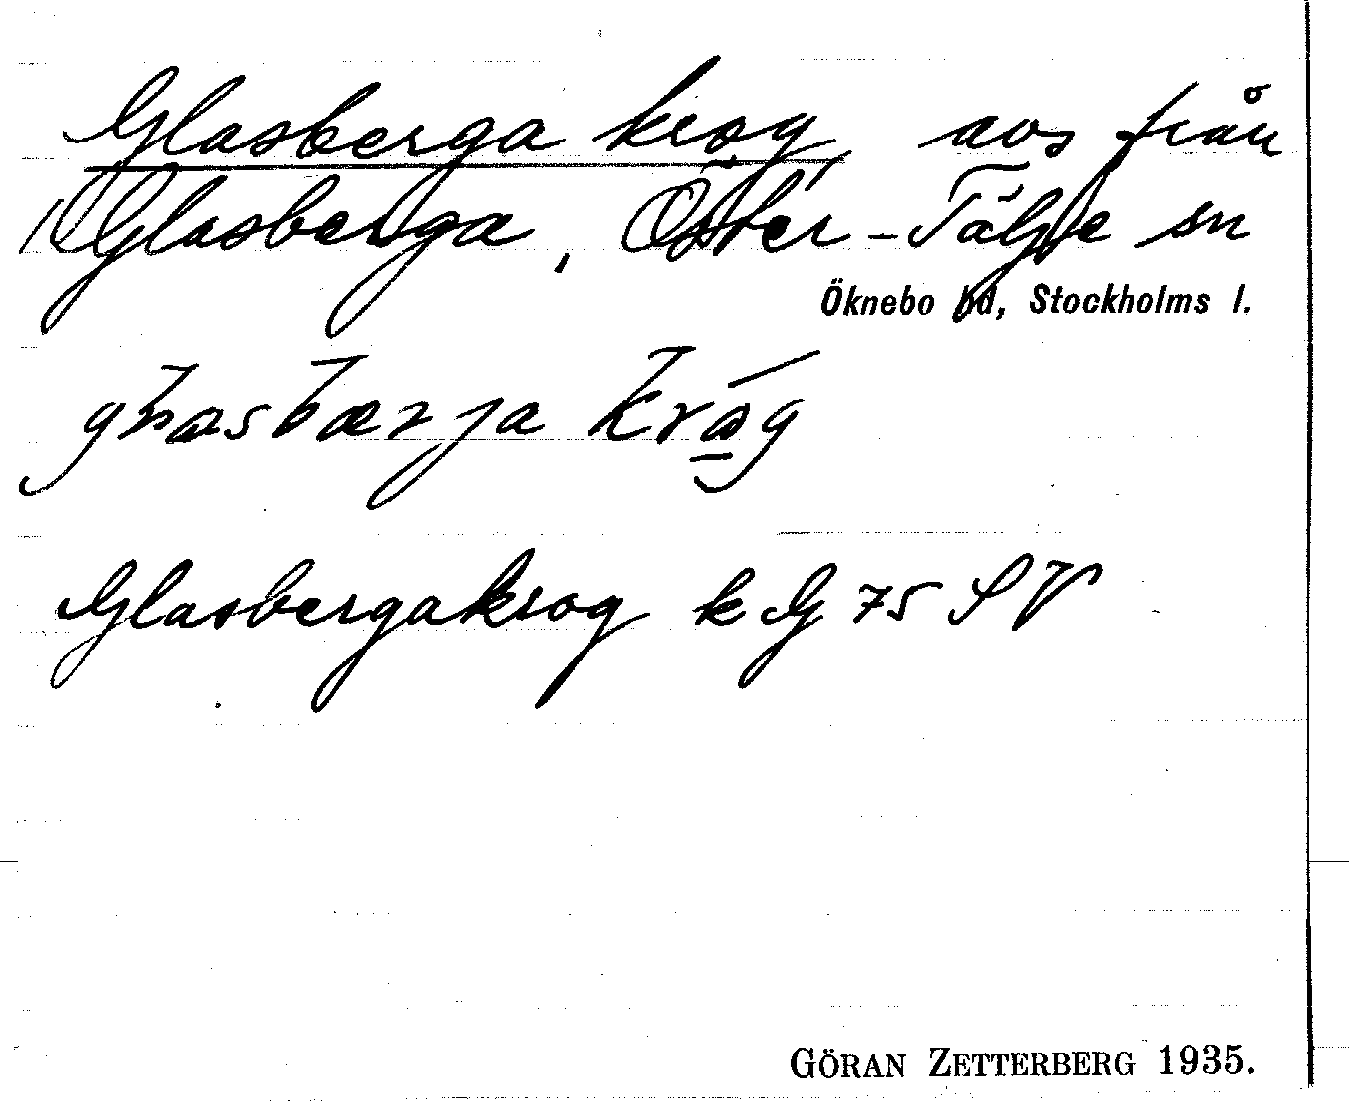 Glasberga krog, avs från
1/1 Glasberga, Öster-Tälje sn
Öknebo hd, Stockholms l.
Glasbergakrog k G 75 S V
GÖRAN ZETTERBERG 1935.